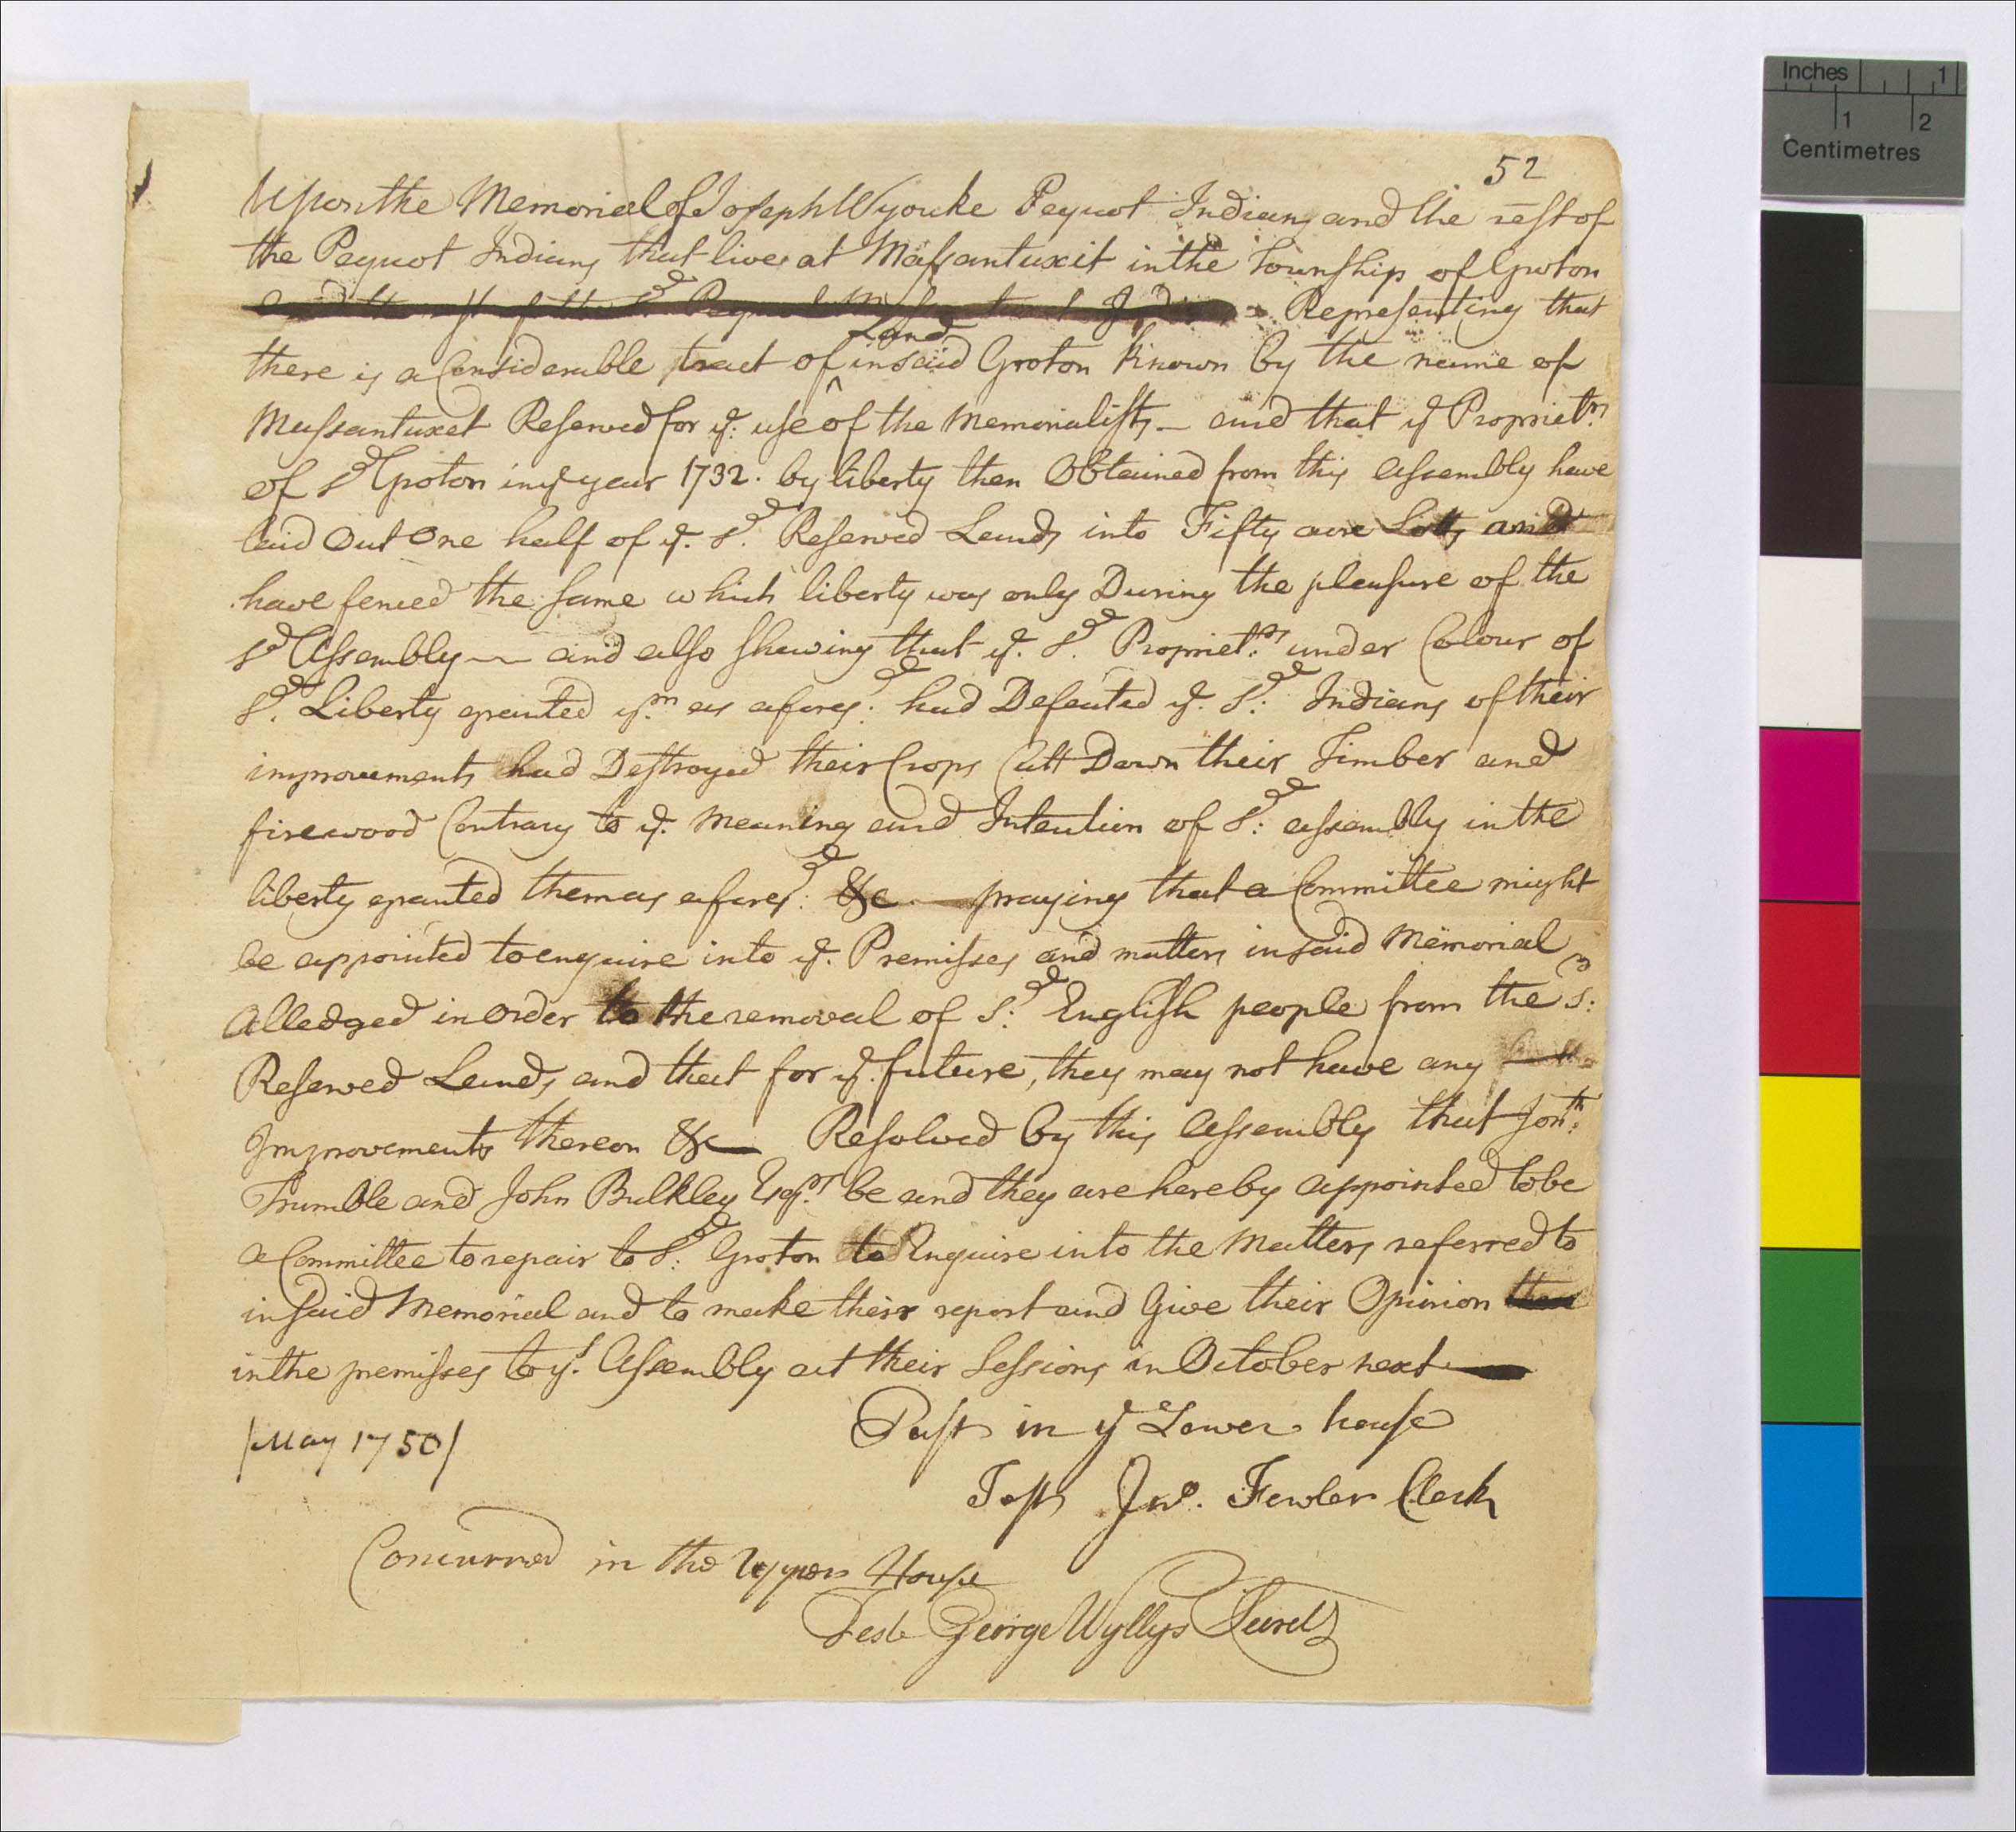 52
Upon the Memorial of Joseph Wyouke Pequot Indian, and the rest of
the Pequot Indians that live at Massantuxit in the Township of Groton
Representing that
there is a Considerable tract of Land in said Groton known by the name of
Massantuxet Reserved for ye. use of the memorialists — and that ye Propriet.rs
of sd Groton in ye year 1732. by liberty then Obtained from this assembly have
laid Out One half of ye. sd. Reserved Lands into Fifty acre Lotts and
have fenced the same which liberty was only During the pleasure of the
sd Assembly — and also shewing that ye. sd. Propriet.rs under Colour of
sd. Liberty granted ym. as afores.d had Defeated ye. sd. Indians of their
improvements had Destroyed their Crops Cutt Down their Timber and
firewood Contrary to ye. meaning and Intention of sd: assembly in the
liberty granted them as afores.d &c. — praying that a Committee might
be appointed to enquire into ye. Premisses and matters in said Memorial
Alledged in Order to the removal of sd: English people from the sd:
Reserved Lands, and that for ye. future, they may not have any
Improvements thereon &c — Resolved by this Assembly that Jonth:
Trumble and John Bulkley Esqrs. be and they are hereby appointed to be
a Committee to repair to sd: Groton to Enquire into the Matters referred to
in said Memorial and to make their report and Give their Opinion
in the premisses to ys. Assembly at their Sessions in October next —
Past in ye Lower house
/May 1750/
Test Jno. Fowler Clerk
Concurred in the Upper House
Test George Wyllys Secret.
Inches 1
1 2
Centimetres